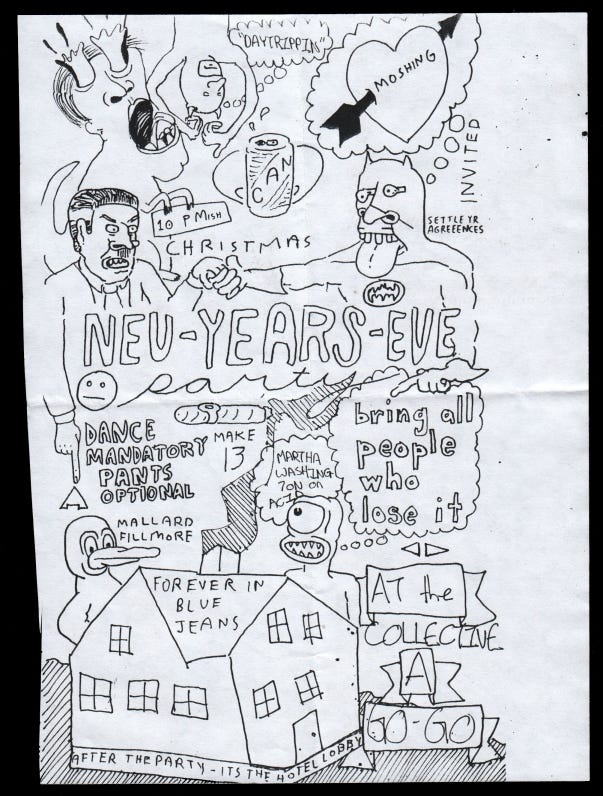 "DAYTRIPPIN"
MOSHING
INVITED
CAN
SETTLE YR
AGREEENCES
10 PMish
CHRISTMAS
NEU-YEARS-EVE
party
DANCE
MANDATORY
PANTS
OPTIONAL
MAKE
13
MARTHA
WASHING
TON ON
ACID
bring all
people
who
lose it
MALLARD
FILLMORE
FOREVER IN
BLUE
JEANS
AT the
COLLECTIVE
A
GO-GO
AFTER THE PARTY - ITS THE HOTEL LOBBY